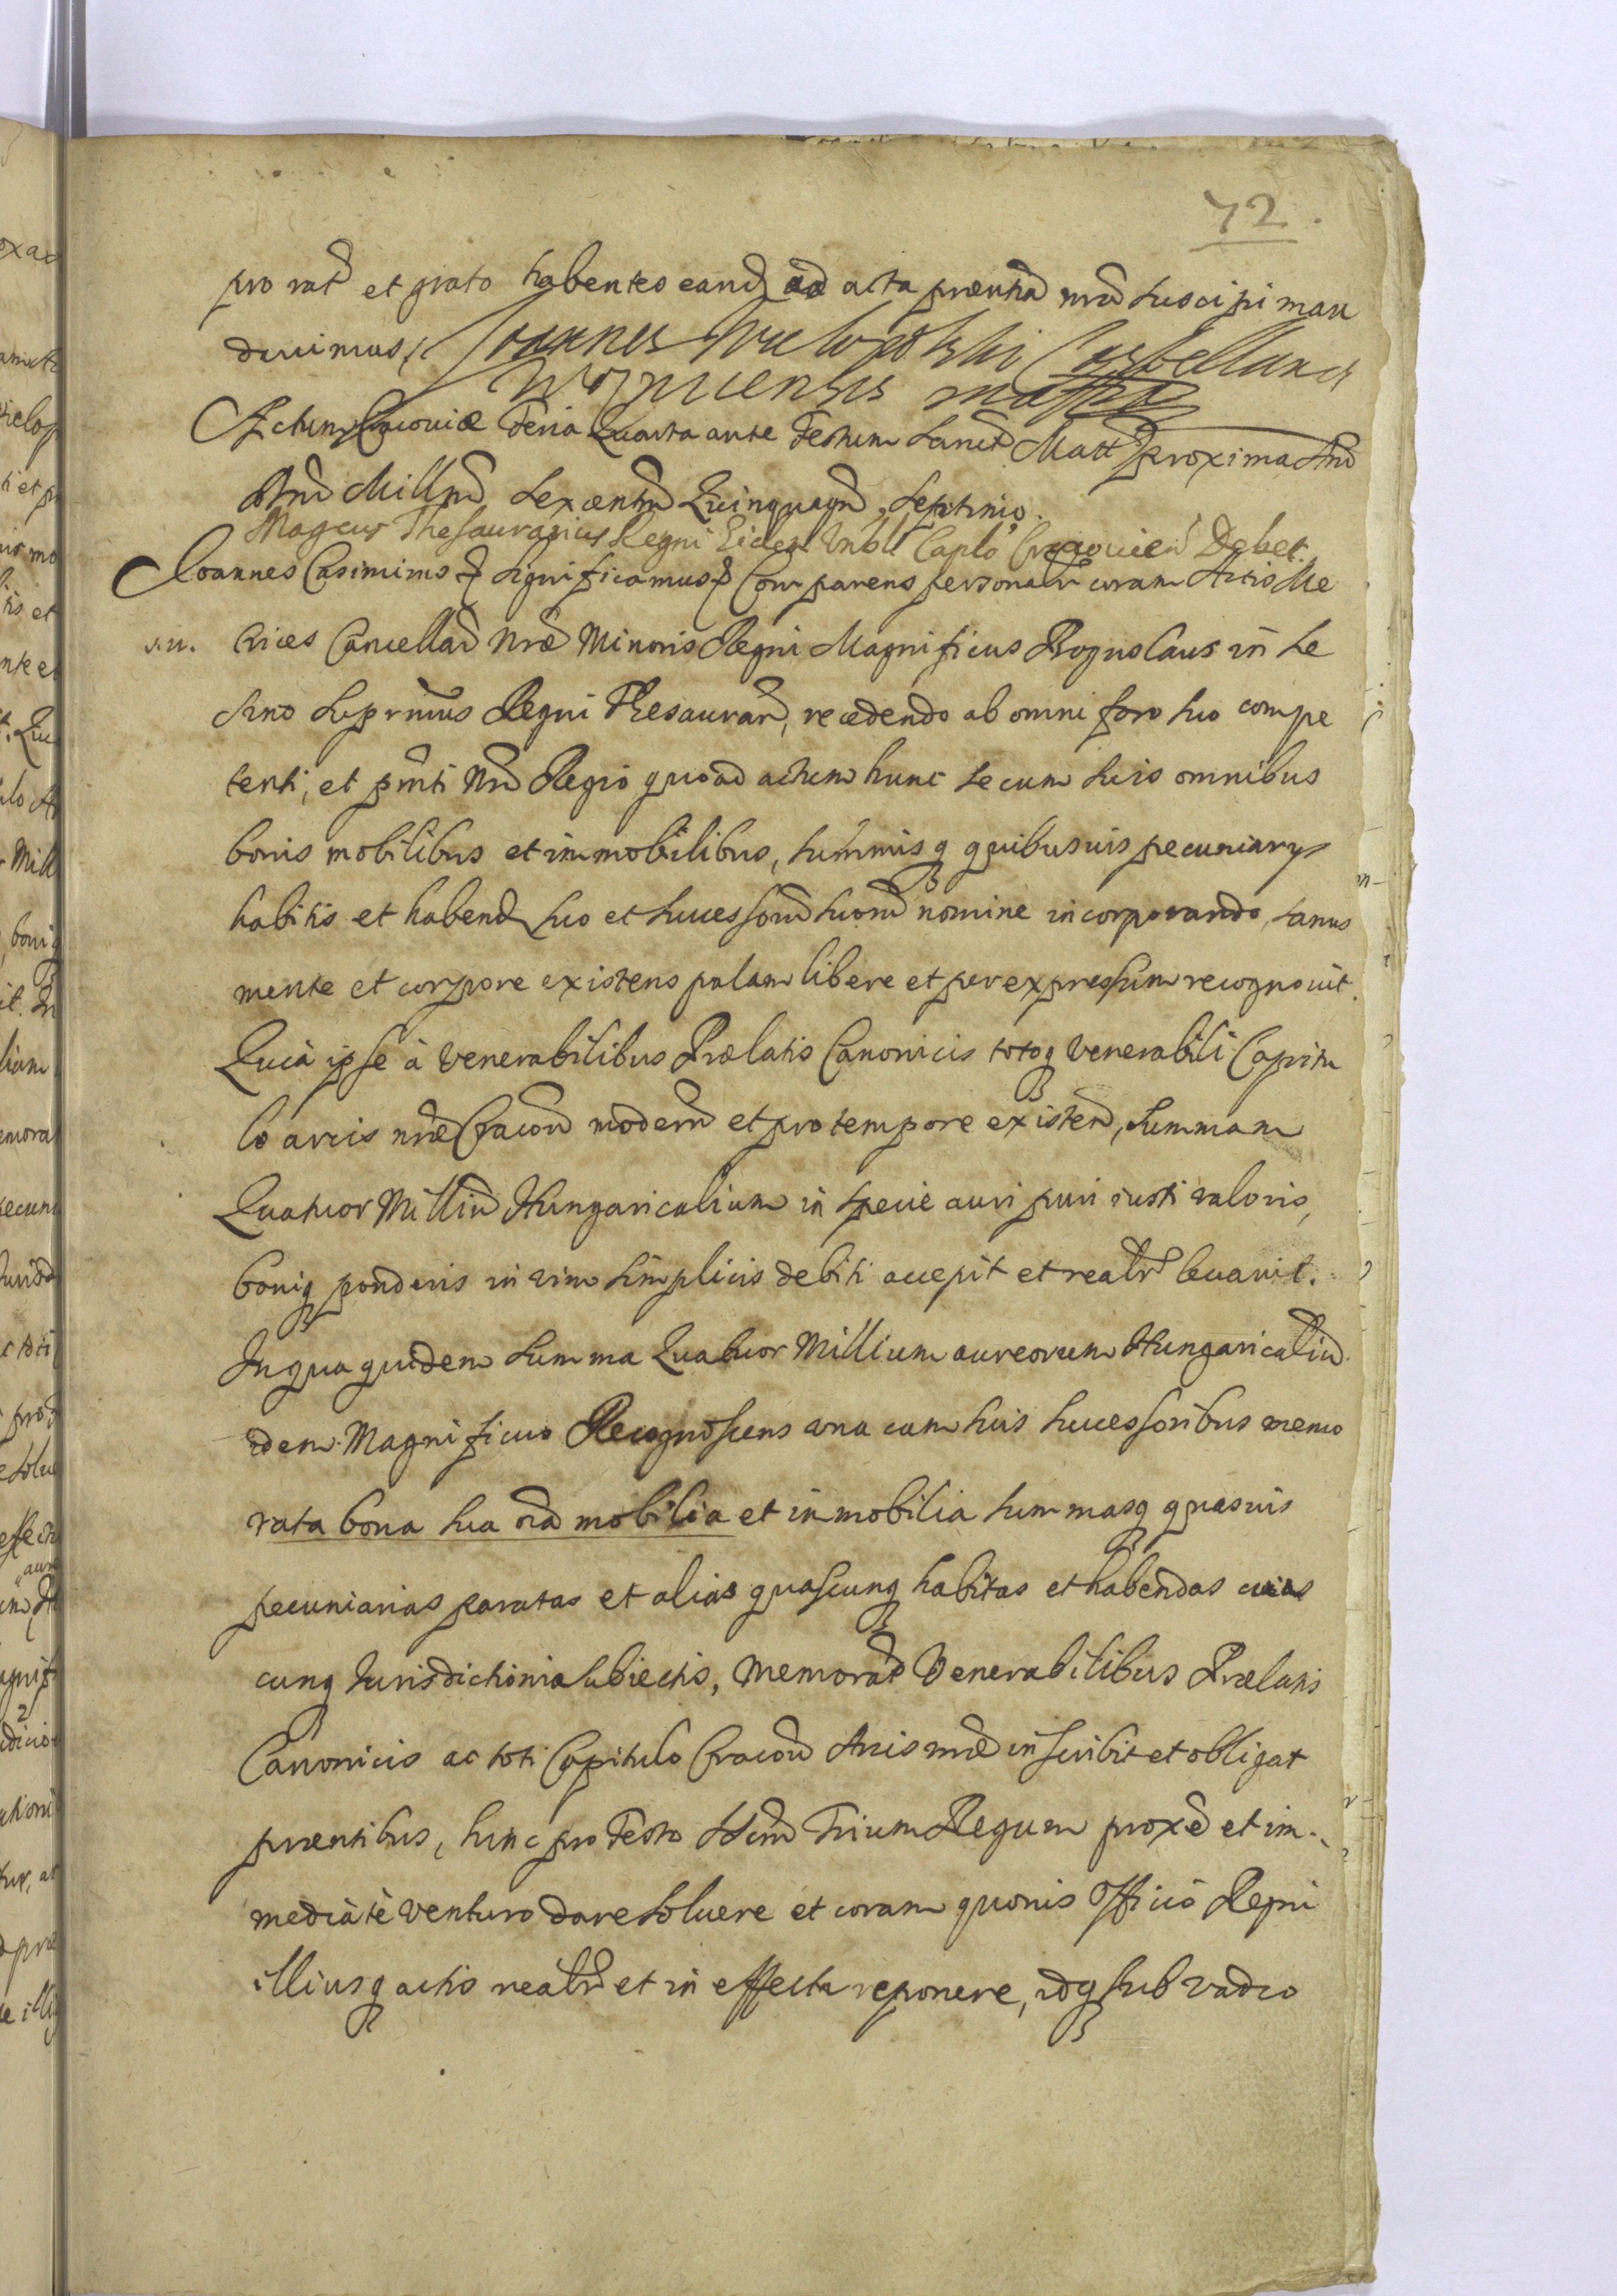 72.
pro rat et grato habentes eand ad acta præntia nra suscipi man
davimus. Joannes Wielopolski Castellanus
Woynicensis mpp
Actum Cracoviæ Feria Quarta ante Festum Sancti Matt proxima And
Dni Millmo Sexcentmo Quinquagmo Septimo.
Magcus Thesaurarius Regni Eidem Vnbli Caplo Cracovien Debet.
Joannes Casimirus & Significamus & Comparens personalr coram Actis Me
v.n. trices Cancellar Nræ Minoris Regni Magnificus Boguslaus in Le
sno Supremus Regni Thesaurar, recedendo ab omni foro suo compe
tenti, et pnti Nro Regio quoad actum hunc se cum suis omnibus
bonis mobilibus et immobilibus, summisq quibusuis pecuniarys
habitis et habend suo et successorum suorum nomine incorporando, sanus
mente et corpore existens palam libere et per expressum recognouit.
Quia ipse à Venerabilibus Prælatis Canonicis totoq Venerabili Capitu
lo arcis nræ Cracovien modern et pro tempore existen, Summam
Quatuor Millium Hungaricalium in specie auri puri iusti valoris,
boniq ponderis in vim simplicis debiti accepit et realr leuauit.
In qua quidem summa Quatuor Millium aureorum Hungaricalium
idem Magnificus Recognoscens una cum suis successoribus memo
rata bona sua oia mobilia et immobilia summasq quasuis
pecuniarias paratas et alias quascunq habitas et habendas cuius
cunq Jurisdictionis subiectis, memorat Venerabilibus Prælatis
Canonicis ac toti Capitulo Cracovien Arcis nræ inscribit et obligat
præntibus, hinc pro Festo SStm Trium Regum proxè et im-
mediatè venturo dare soluere et coram quouis Officio Regni
illiusq actis realr et in effectu reponere, idq sub vadio